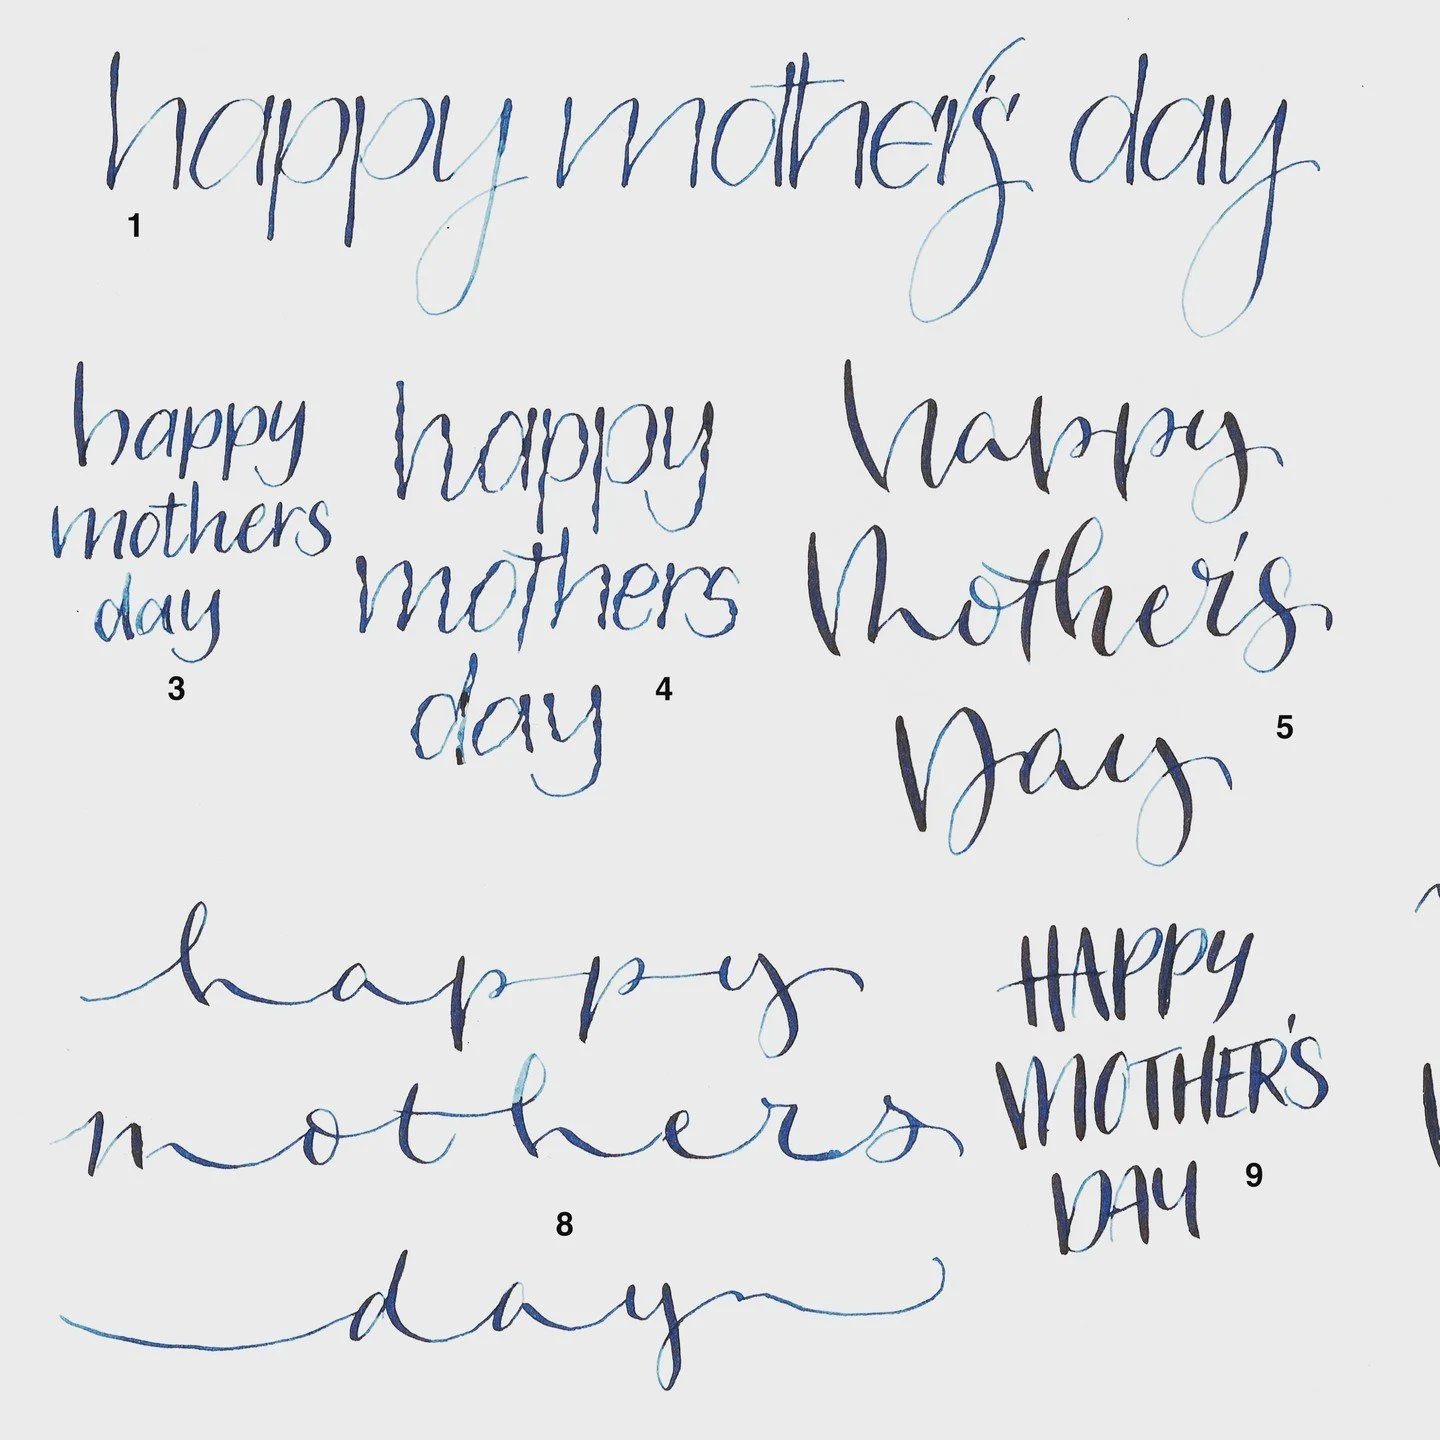 happy mother's day
1
happy
mothers
day
3
happy
mothers
day
4
happy
Mother's
Day
5
happy
mothers
8
day
HAPPY
MOTHER'S
DAY
9